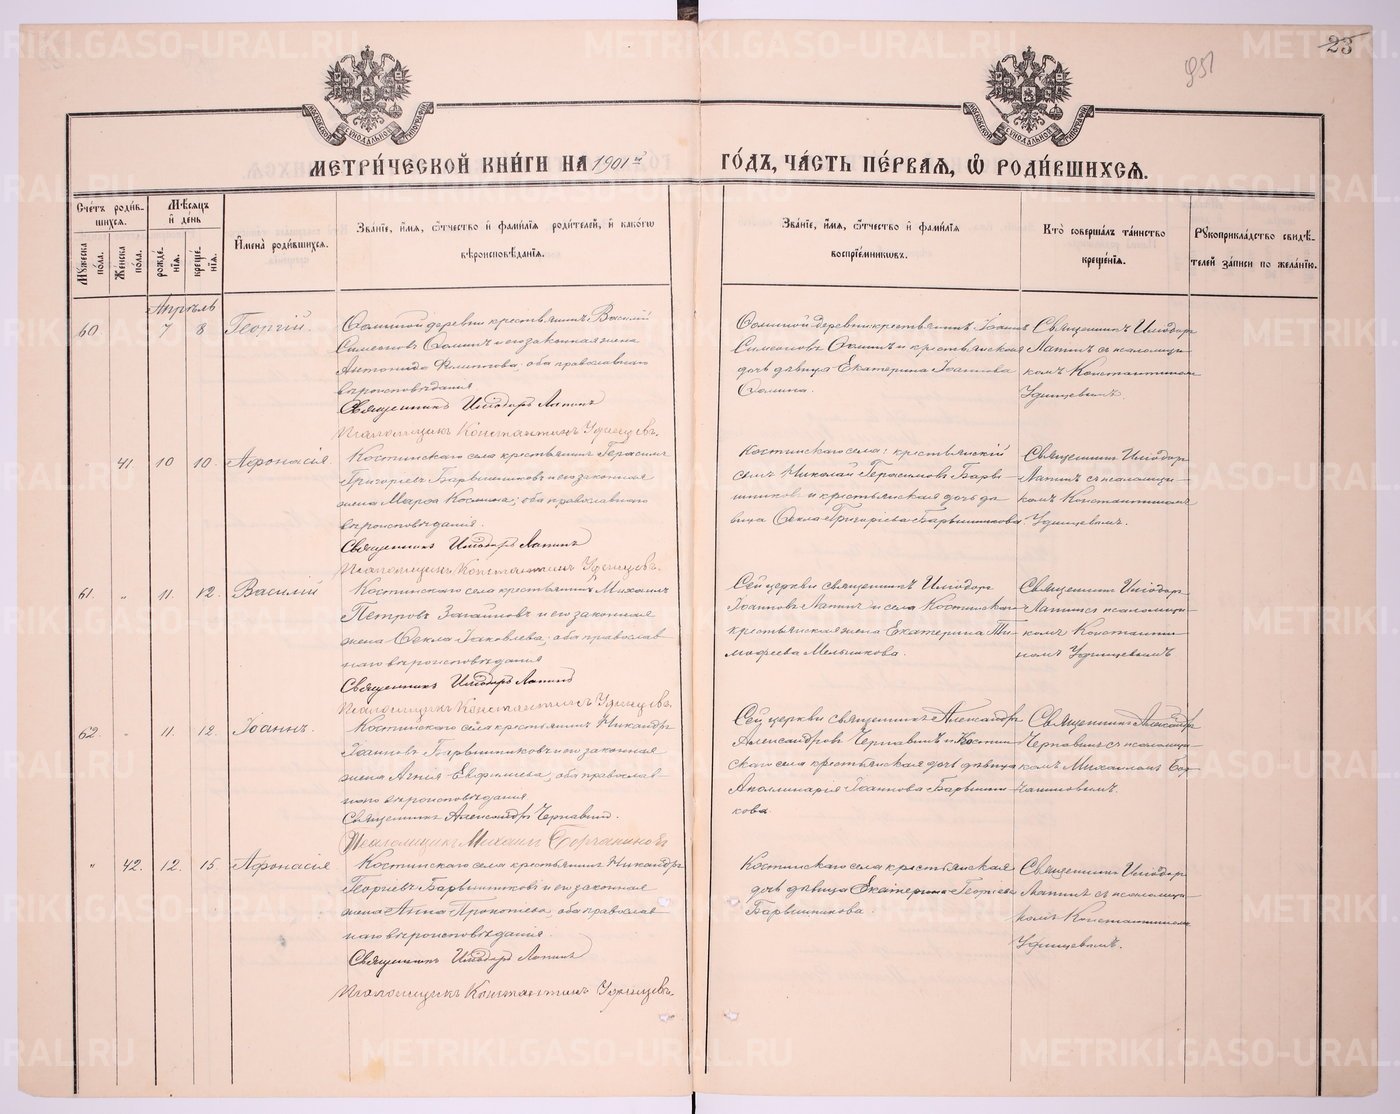 951
23
МЕТРИ́ЧЕСКОЙ КНИ́ГИ НА 1901й ГО́ДЪ, ЧА́СТЬ ПЕ́РВАЯ, Ѽ РОДИ́ВШИХСѦ.
Сче́тъ роди́в-
шихся.
Мѣ́сяцъ
и҆ де́нь
Му́жеска
по́ла.
Же́нска
по́ла.
рожде́-
нїя.
креще́-
нїя.
И҆мена̀ роди́вшихся.
Зва́нїе, и҆́мя, ѻ҆́тчество и҆ фами́лїя роди́телей, и҆ како́гѡ
вѣроисповѣ́данїя.
Зва́нїе, и҆́мя, ѻ҆́тчество и҆ фами́лїя
воспрїе́мникѡвъ.
Кто̀ соверша́лъ та́инство
креще́нїя.
Рꙋкоприкла́дство свидѣ́-
телей за́писи по жела́нїю.
Апрѣль
60 7 8 Георгій.
деревни крестьянинъ Василій
Симеоновъ и его законная жена
Антонида Филиппова, оба православнаго
вѣроисповѣданія.
Священникъ Иліодоръ Лапинъ
Псаломщикъ Константинъ Удинцевъ.
деревни крестьянинъ Іоаннъ
Симеоновъ и крестьянская
дочь дѣвица Екатерина Іоаннова
Священникъ Иліодоръ
Лапинъ съ псаломщи-
комъ Константиномъ
Удинцевымъ.
41. 10 10. Афонасія.
Костинскаго села крестьянинъ Герасимъ
Григоріевъ Барвинниковъ и его законная
жена Марѳа Козмина, оба православнаго
вѣроисповѣданія.
Священникъ Иліодоръ Лапинъ
Псаломщикъ Константинъ Удинцевъ.
Костинскаго села: крестьянскій
сынъ Николай Герасимовъ Барви-
нниковъ и крестьянская дочь дѣ-
вица Ѳекла Григоріева Барвинникова
Священникъ Иліодоръ
Лапинъ съ псаломщи-
комъ Константиномъ
Удинцевымъ.
61. " 11. 12. Василій
Костинскаго села крестьянинъ Михаилъ
Петровъ и его законная
жена Ѳекла Іаковлева, оба православ-
наго вѣроисповѣданія
Священникъ Иліодоръ Лапинъ
Псаломщикъ Константинъ Удинцевъ.
Сей церкви священникъ Иліодоръ
Іоанновъ Лапинъ и села Костинскаго
крестьянская жена Екатерина Ти-
мофеева Мельникова.
Священникъ Иліодоръ
Лапинъ съ псаломщи-
комъ Константи-
номъ Удинцевымъ
62. " 11. 12. Іоаннъ.
Костинскаго села крестьянинъ Никандръ
Іоанновъ Барвинниковъ и его законная
жена Агнія Евфиміева, оба православ-
наго вѣроисповѣданія
Священникъ Александръ Чернавинъ.
Псаломщикъ Михаилъ Борчаниновъ
Сей церкви священникъ Александръ
Александровъ Чернавинъ и Костин-
скаго села крестьянская дочь дѣвица
Аполлинарія Іоаннова Барвинни-
кова
Священникъ Александръ
Чернавинъ съ псаломщи-
комъ Михаиломъ Бор-
чаниновымъ.
" 42. 12. 15 Афонасія
Костинскаго села крестьянинъ Никандръ
Георгіевъ Барвинниковъ и его законная
жена Анна Прокопіева, оба православ-
наго вѣроисповѣданія.
Священникъ Иліодоръ Лапинъ
Псаломщикъ Константинъ Удинцевъ.
Костинскаго села крестьянская
дочь дѣвица Екатерина Георгіева
Барвинникова.
Священникъ Иліодоръ
Лапинъ съ псаломщи-
комъ Константиномъ
Удинцевымъ.
METRIKI.GASO-URAL.RU